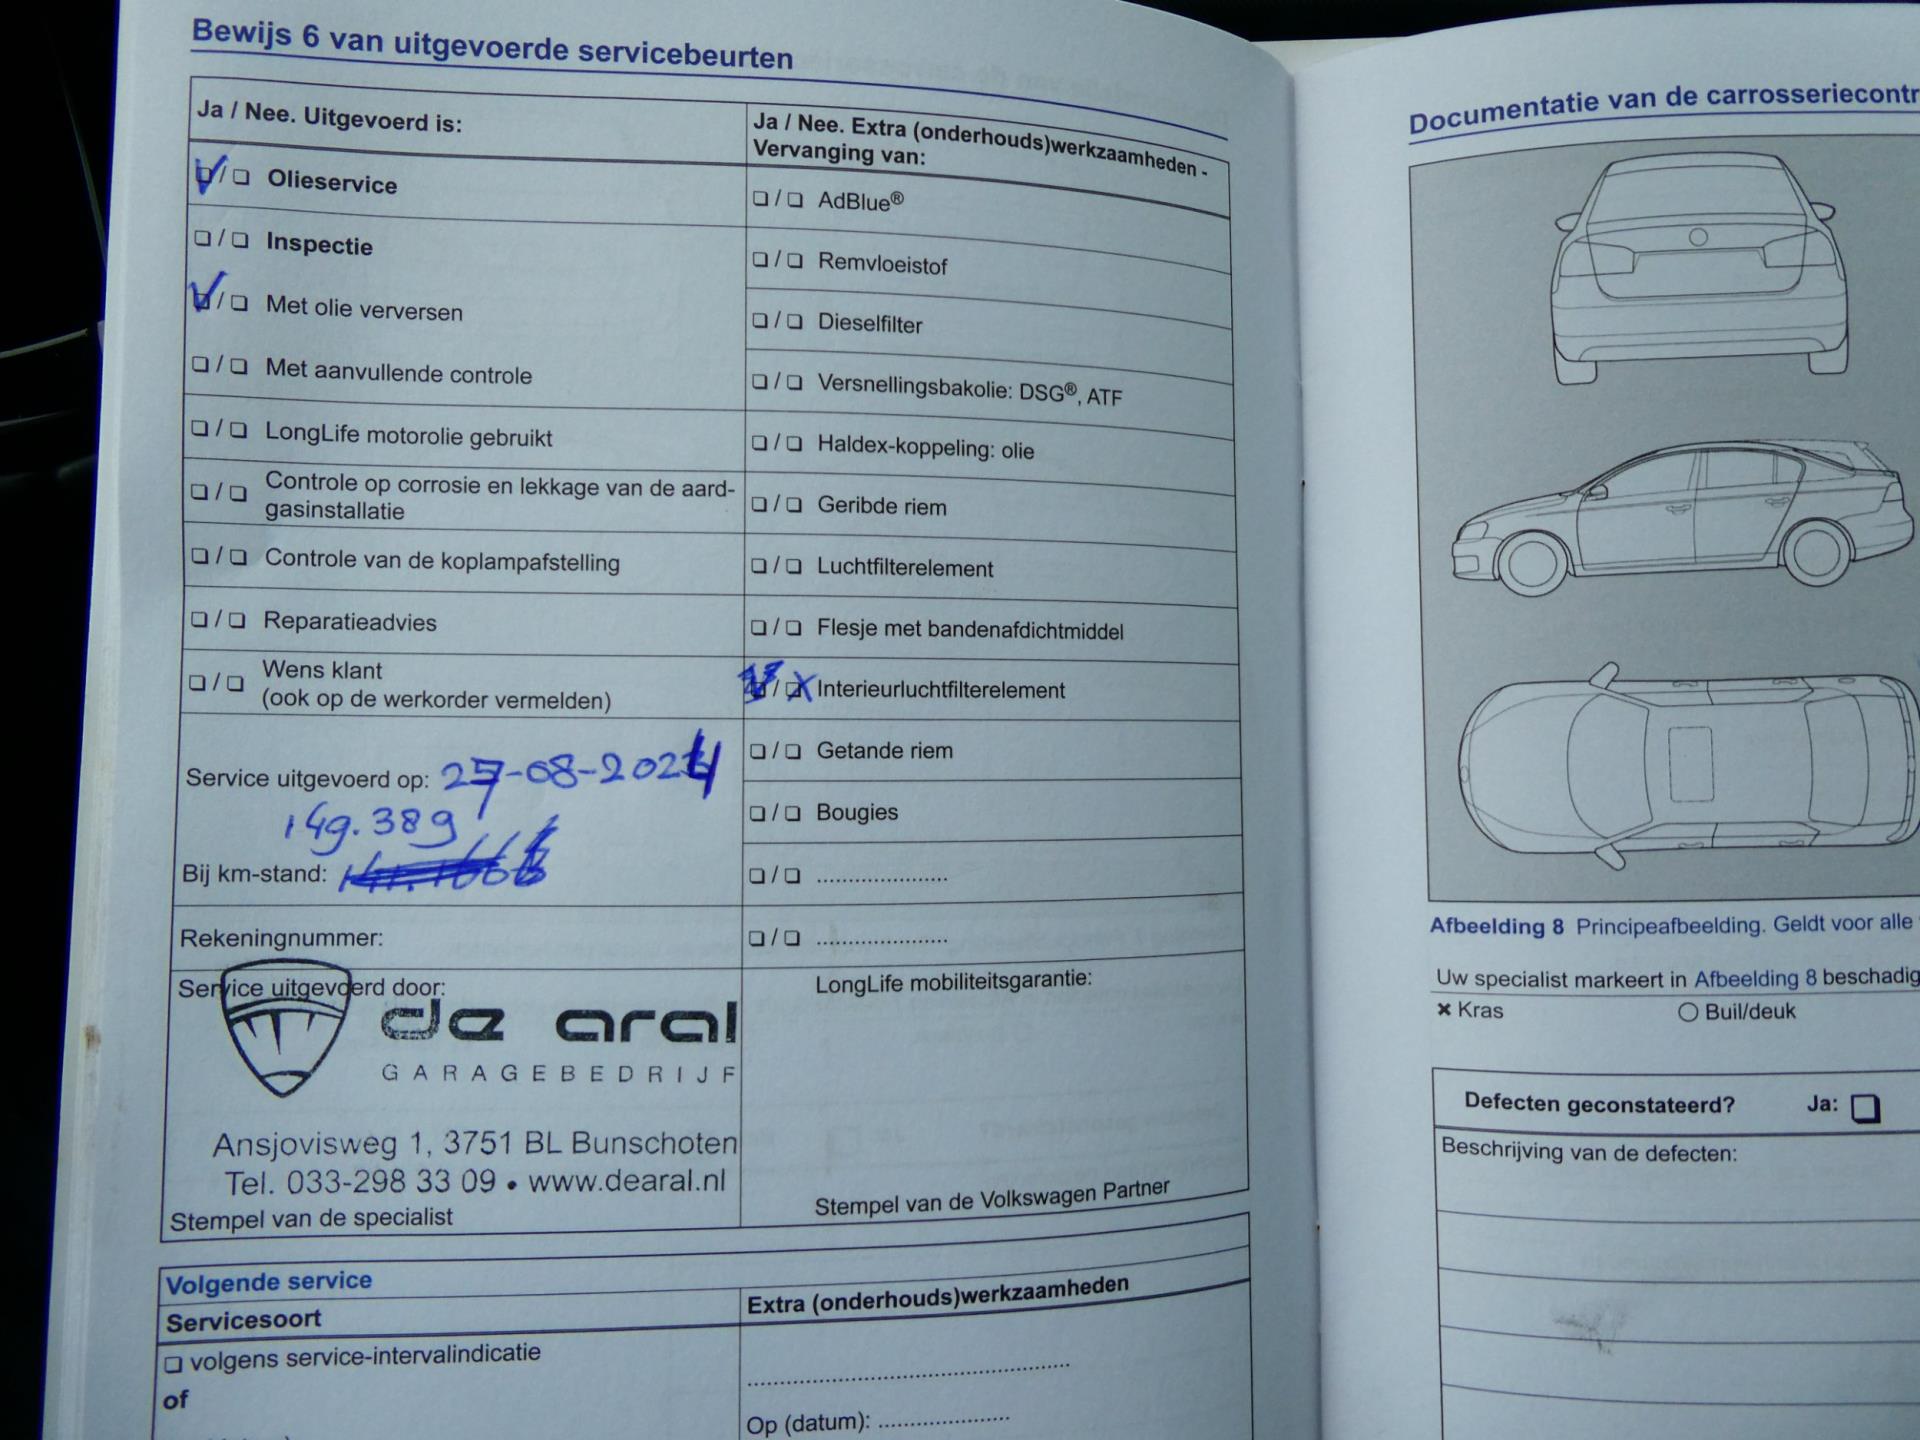 Bewijs 6 van uitgevoerde servicebeurten
Ja / Nee. Uitgevoerd is:
Olieservice
Inspectie
Met olie verversen
Met aanvullende controle
LongLife motorolie gebruikt
Controle op corrosie en lekkage van de aard-
gasinstallatie
Controle van de koplampafstelling
Reparatieadvies
Wens klant
(ook op de werkorder vermelden)
Service uitgevoerd op: 27-08-2024
149.389
Bij km-stand:
Rekeningnummer:
Service uitgevoerd door:
de aral
GARAGEBEDRIJF
Ansjovisweg 1, 3751 BL Bunschoten
Tel. 033-298 33 09 • www.dearal.nl
Stempel van de specialist
Ja / Nee. Extra (onderhouds)werkzaamheden -
Vervanging van:
AdBlue®
Remvloeistof
Dieselfilter
Versnellingsbakolie: DSG®, ATF
Haldex-koppeling: olie
Geribde riem
Luchtfilterelement
Flesje met bandenafdichtmiddel
Interieurluchtfilterelement
Getande riem
Bougies
LongLife mobiliteitsgarantie:
Stempel van de Volkswagen Partner
Volgende service
Servicesoort
volgens service-intervalindicatie
of
Extra (onderhouds)werkzaamheden
Op (datum):
Documentatie van de carrosseriecontr
Afbeelding 8 Principeafbeelding. Geldt voor alle
Uw specialist markeert in Afbeelding 8 beschadig
× Kras
Buil/deuk
Defecten geconstateerd? Ja:
Beschrijving van de defecten: